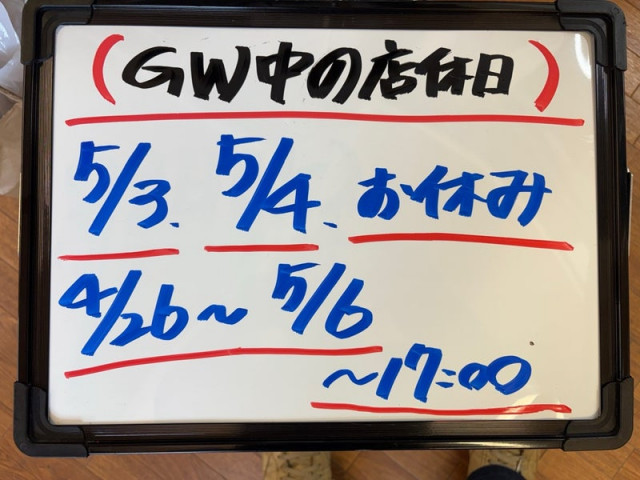 (GW中の店休日)
5/3、5/4、お休み
4/26～5/6
～17:00